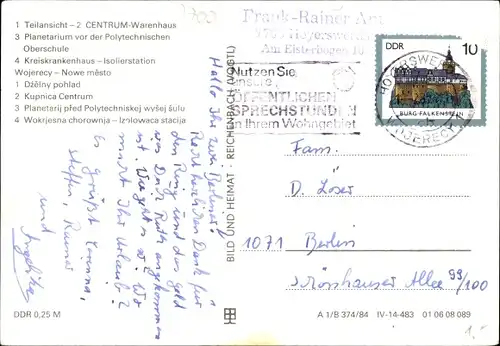 1 Teilansicht – 2 CENTRUM-Warenhaus
3 Planetarium vor der Polytechnischen
Oberschule
4 Kreiskrankenhaus – Isolierstation
Wojerecy – Nowe město
1 Dźělny pohlad
2 Kupnica Centrum
3 Planetarij před Polytechniskej wyšej šulu
4 Wokrjesna chorownja – Izolowaca stacija
Hallo Ihr zwei Berliner!
Recht herzlichen Dank für
den Ring und das Geld
was Dank Ruth angekommen
ist. Wie geht's so? Wo
macht Ihr Urlaub?
Es grüßt
Steffen, Rainer
und
Angelika
DDR 0,25 M
BILD UND HEIMAT · REICHENBACH (VOGTL)
Frank-Rainer
Hoyerswerda
Am Elsterbogen 10
Nutzen Sie
unsere
ÖFFENTLICHEN
SPRECHSTUNDEN
in Ihrem Wohngebiet
HOYERSWERDA
WOJERECY
DDR 10
BURG FALKENSTEIN
Fam.
D. Löser
1071 Berlin
Schönhauser Allee 99/100
A 1/B 374/84 IV-14-483 01 06 08 089